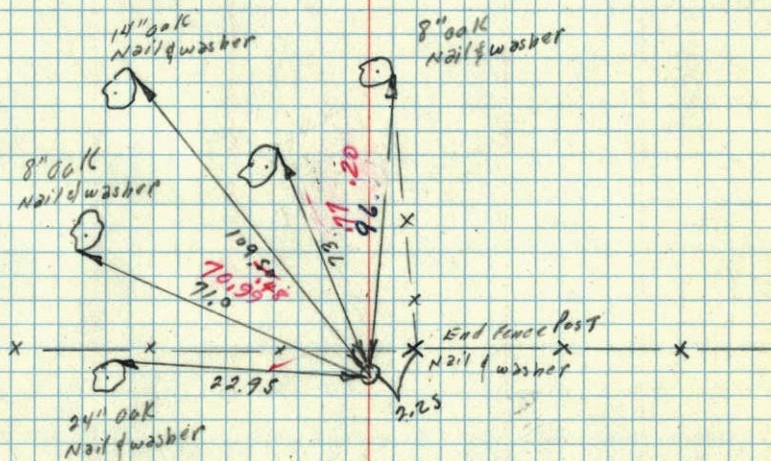 14" oak
Nail & washer
8" oak
Nail & washer
8" oak
Nail & washer
109.50
.48
70.99
71.0
73.
77
.20
96.
End Fence Post
Nail & washer
22.95
2.25
24" oak
Nail & washer